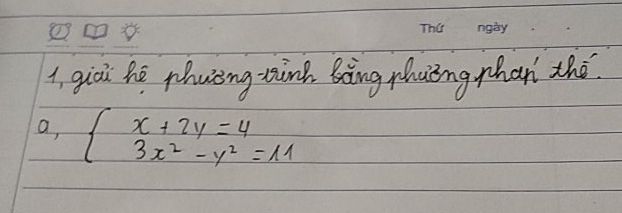 Thứ ngày
1, giải hệ phương trình bằng phương phán thế.
a, { x + 2y = 4
3x² - y² = 11